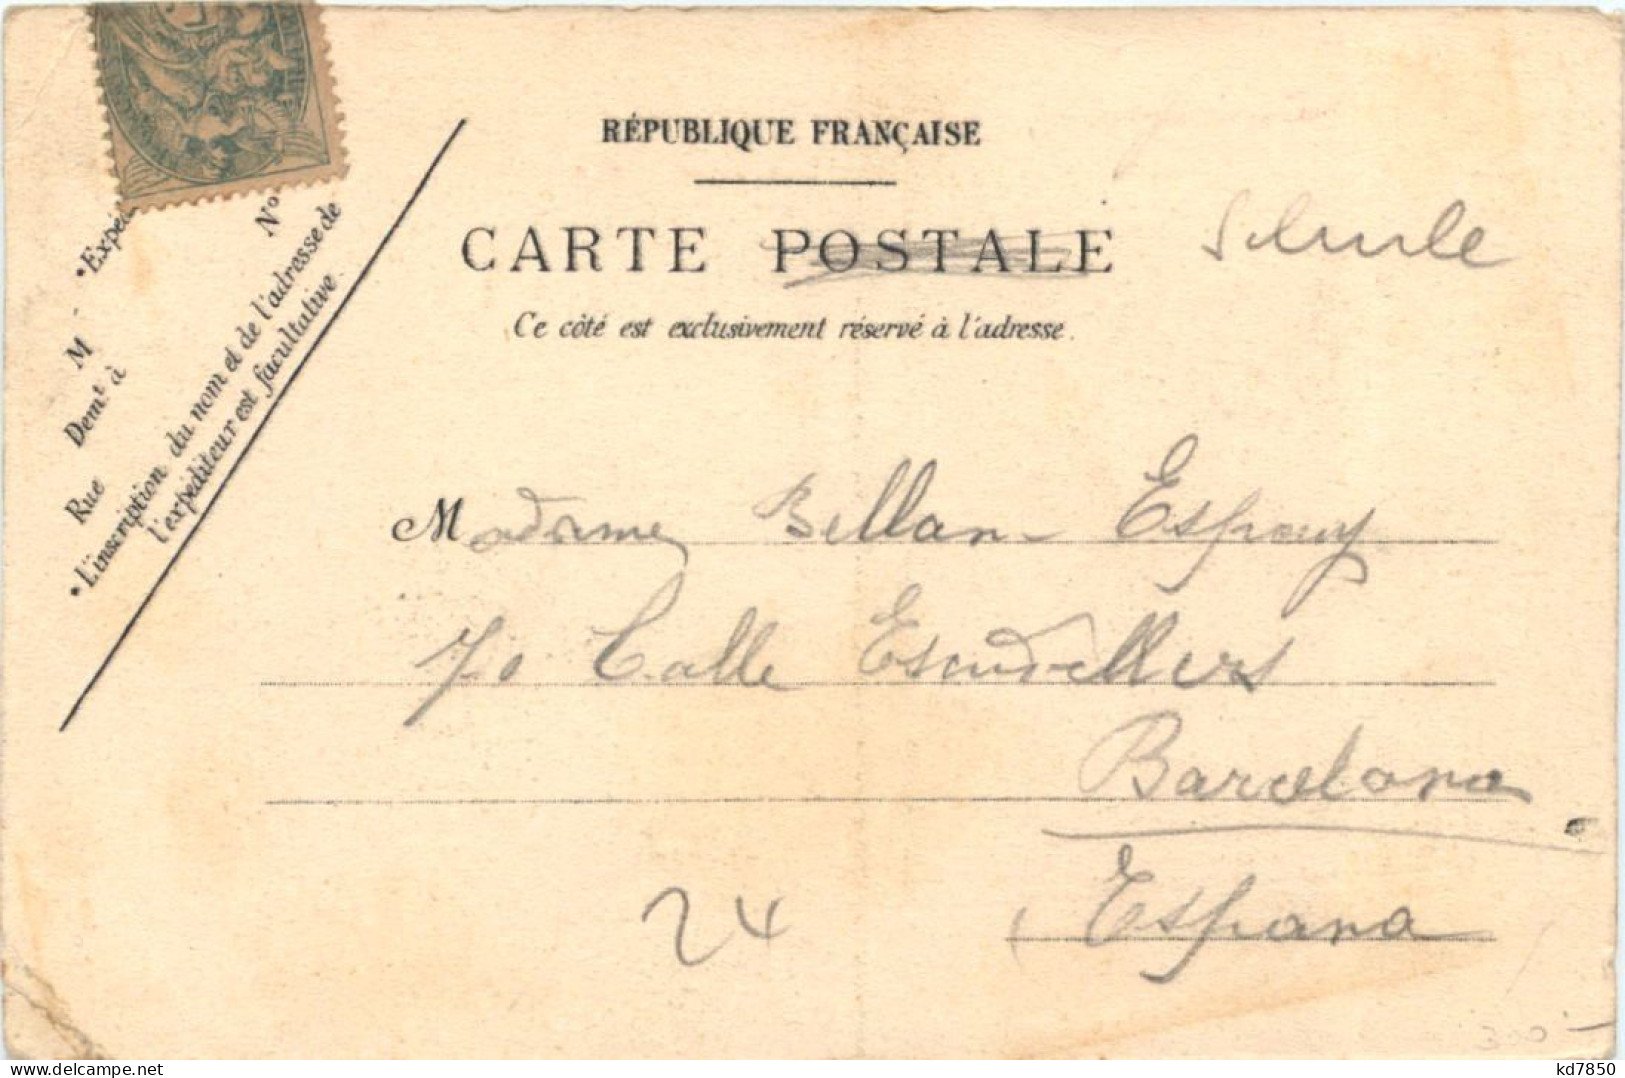 RÉPUBLIQUE FRANÇAISE
CARTE POSTALE
Ce côté est exclusivement réservé à l'adresse.
Nº
M
Demt à
Rue
*L'inscription du nom et de l'adresse de
l'expéditeur est facultative.
Madame Billan- Espouy
70 Calle Escudellers
Barcelona
España
24
300-
kd7850